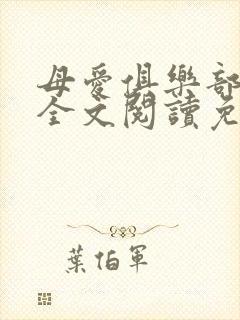 母愛俱樂部
全文閱讀免
葉伯軍